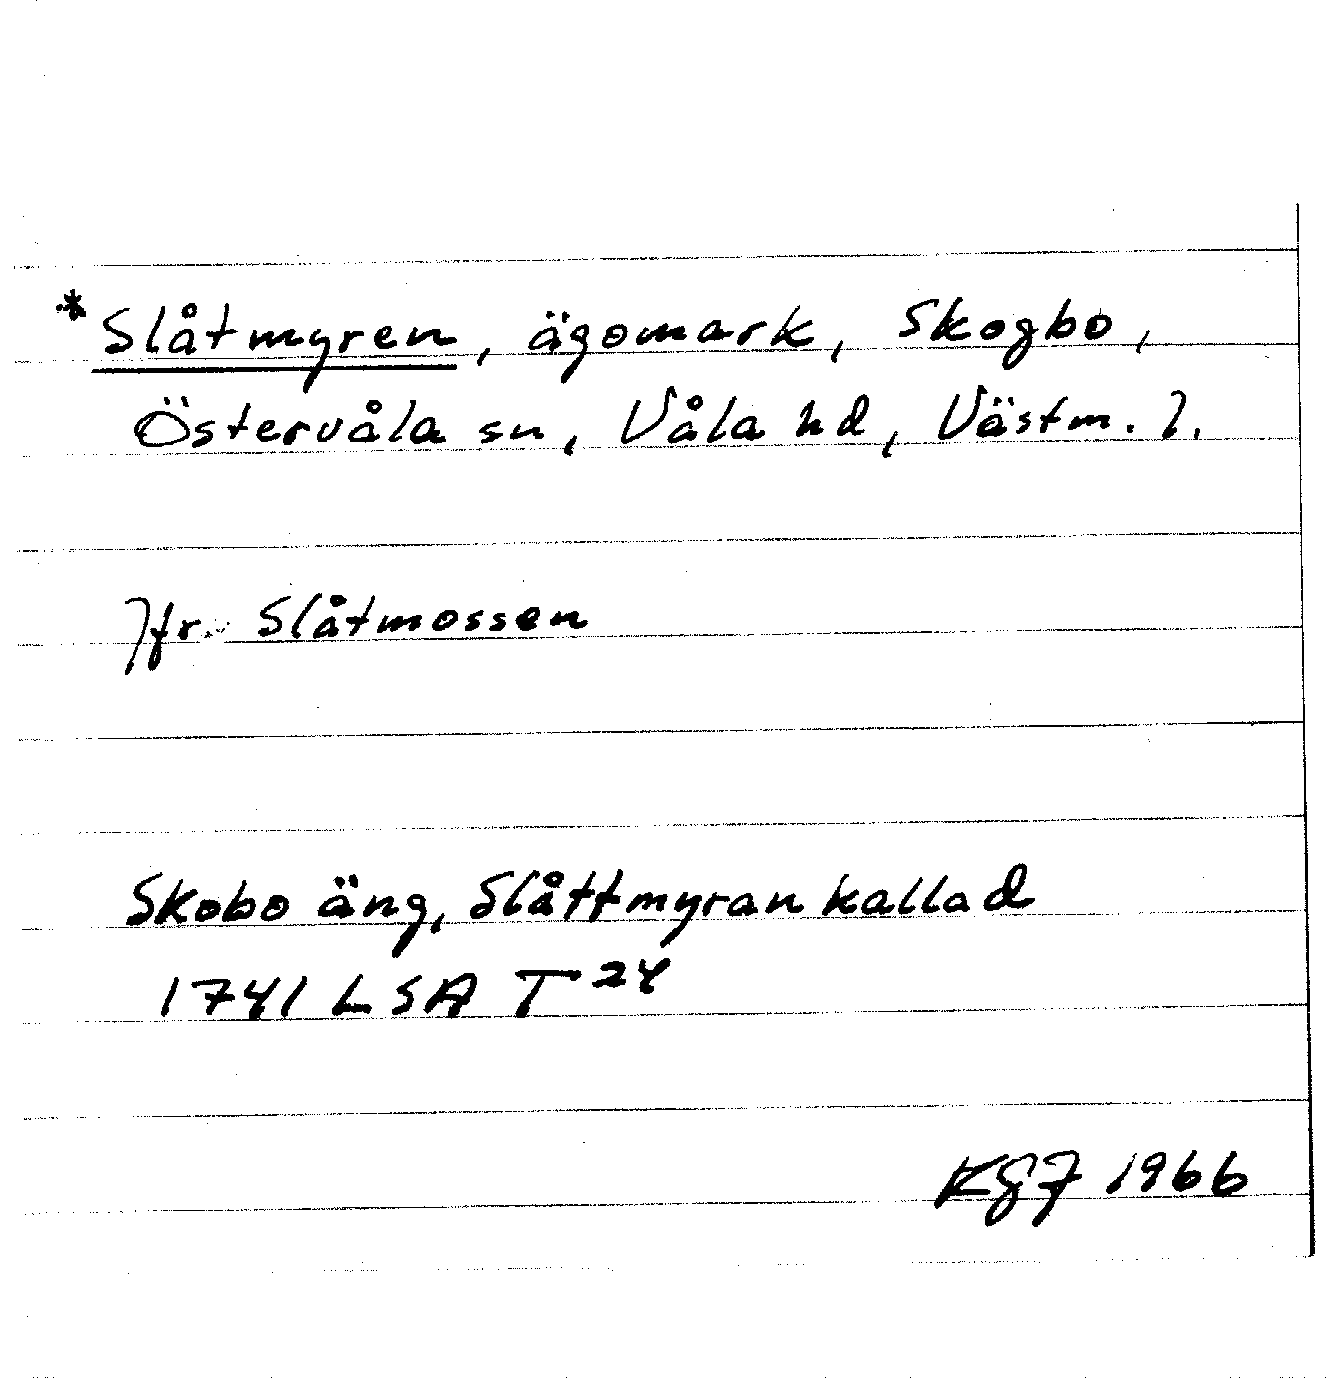 *Slåtmyren, ägomark, Skogbo,
Östervåla sn, Våla hd, Västm. l.
Jfr. Slåtmossen
Skobo äng, Slåttmyran kallad
1741 LSA T 24
KGF 1966